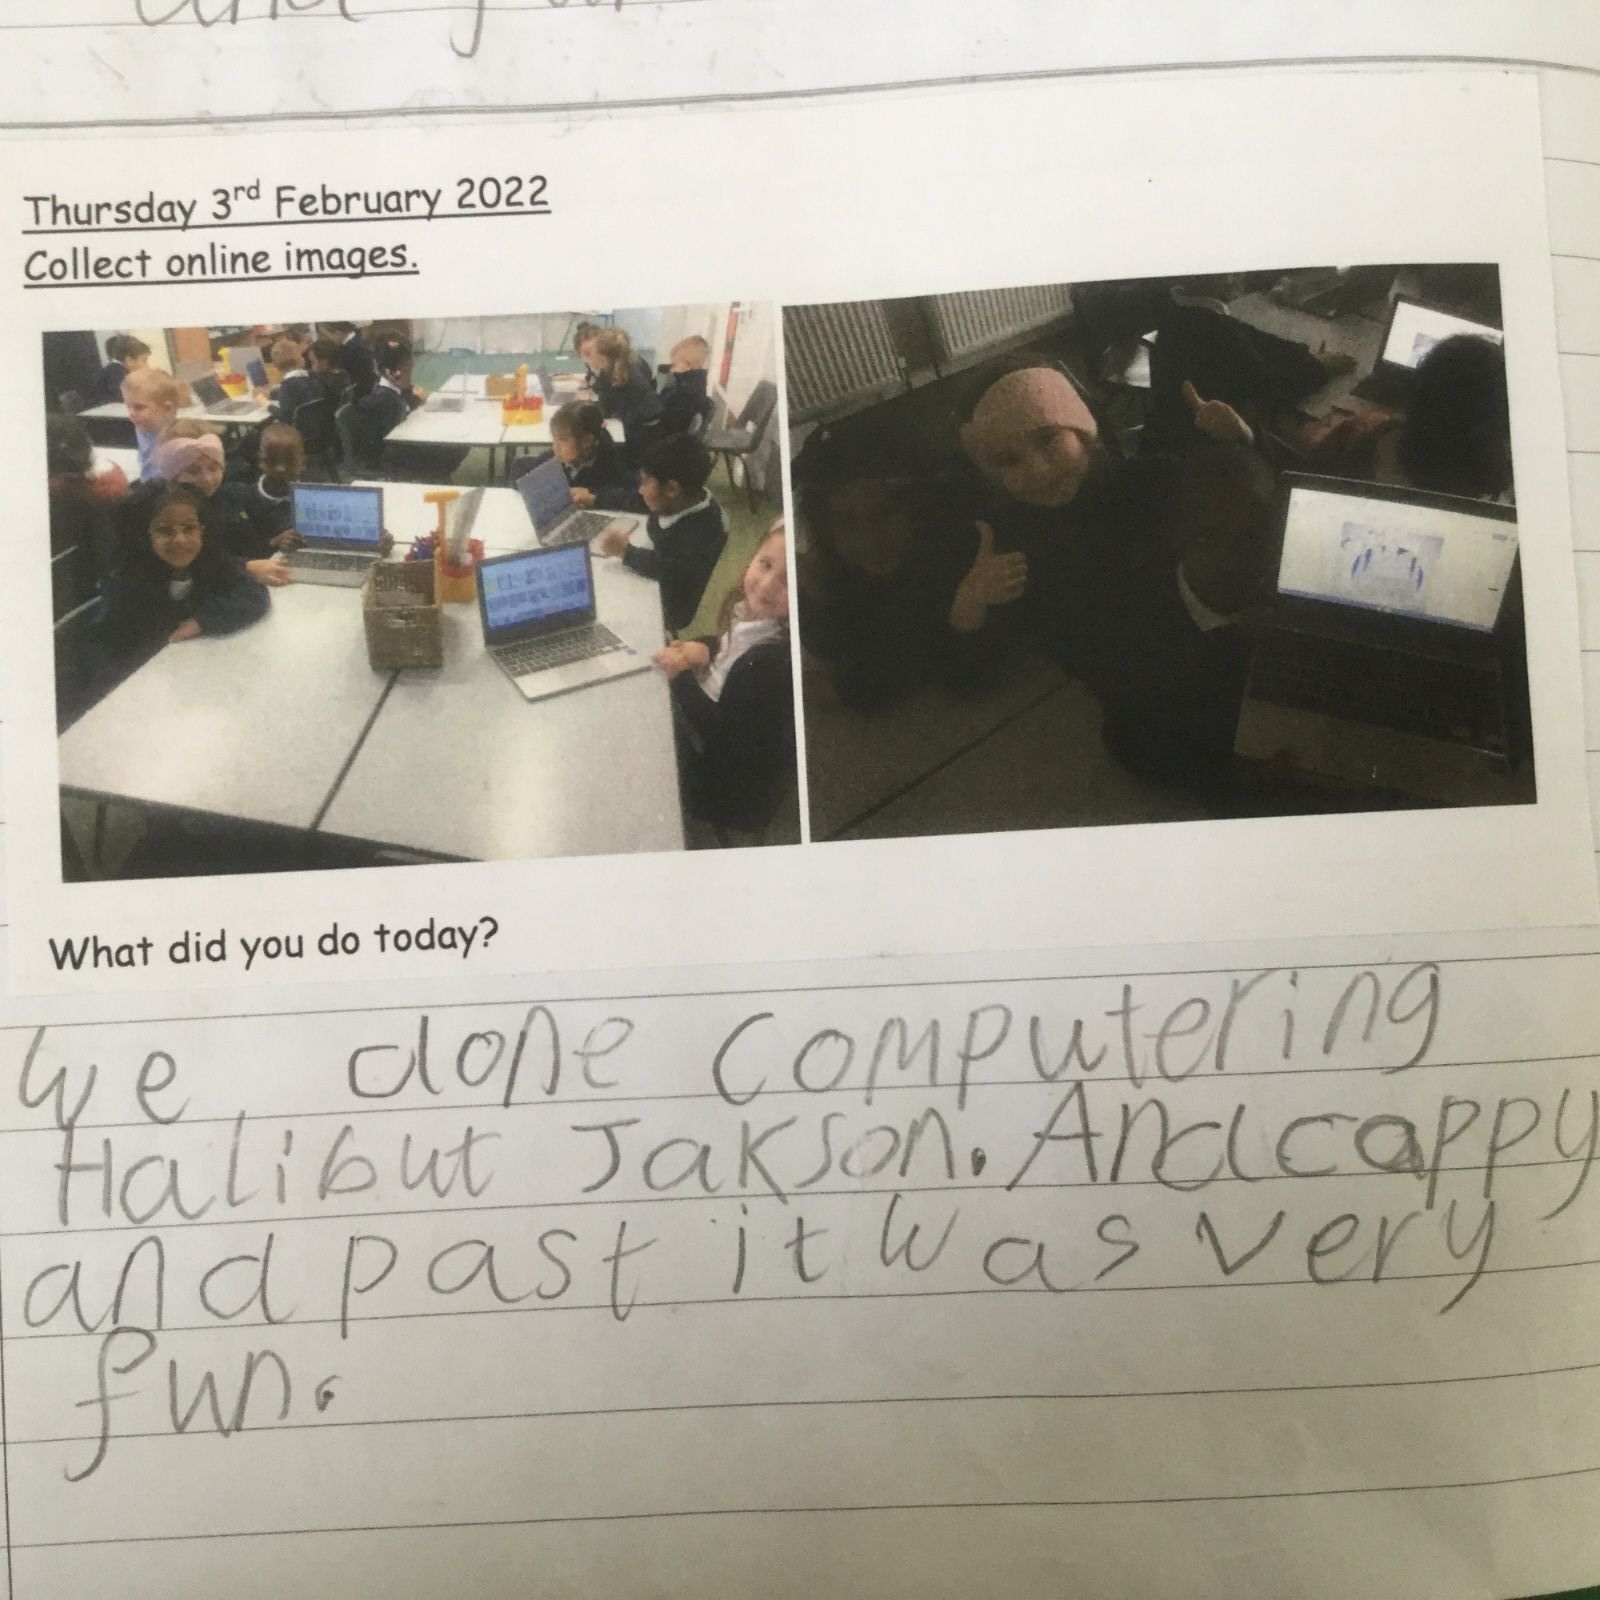 Thursday 3rd February 2022
Collect online images.
What did you do today?
We done computering
Halibut Jakson. And cappy
and past it was very
fun.